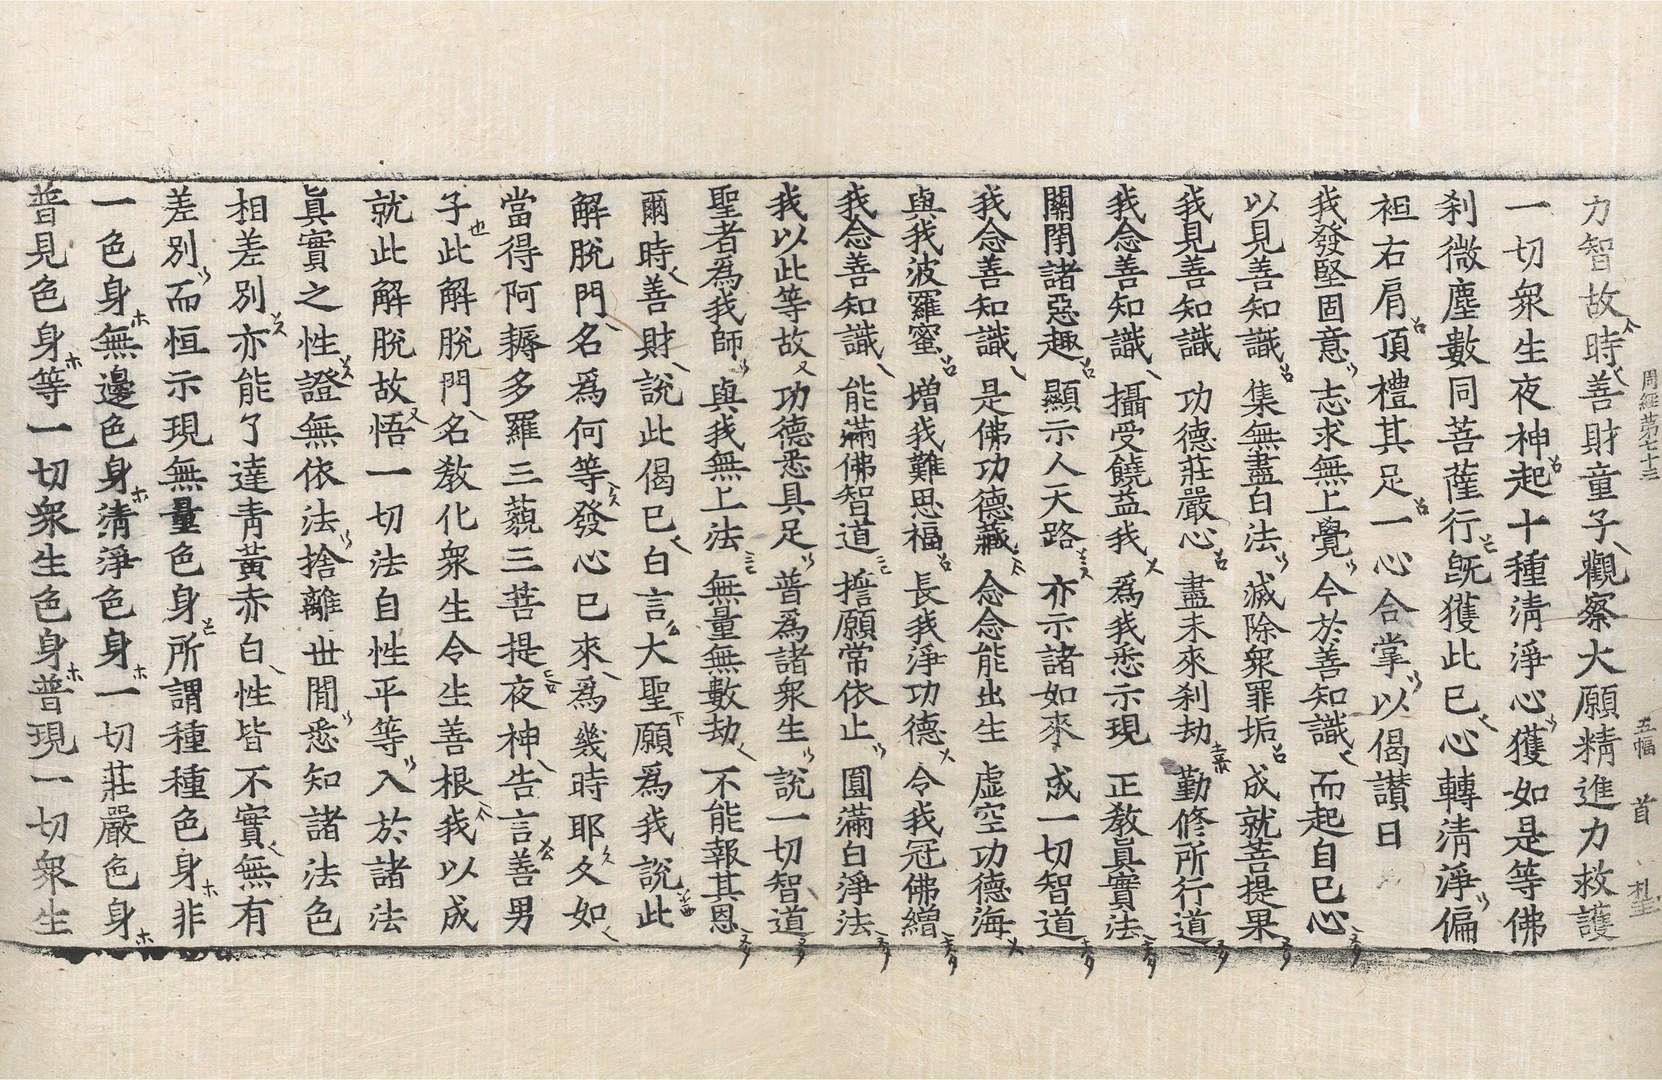 周經第七十三　五幅　首
力智故時善財童子觀察大願精進力救護
一切衆生夜神起十種淸淨心獲如是等佛
刹微塵數同菩薩行旣獲此已心轉淸淨偏
袒右肩頂禮其足一心合掌以偈讃曰
我發堅固意　志求無上覺　今於善知識　而起自已心
以見善知識　集無盡白法　滅除衆罪垢　成就菩提果
我見善知識　功德莊嚴心　盡未來刹劫　勤修所行道
我念善知識　攝受饒益我　爲我悉示現　正敎眞實法
關閉諸惡趣　顯示人天路　亦示諸如來　成一切智道
我念善知識　是佛功德藏　念念能出生　虛空功德海
與我波羅蜜　增我難思福　長我淨功德　令我冠佛繒
我念善知識　能滿佛智道　誓願常依止　圓滿白淨法
我以此等故　功德悉具足　普爲諸衆生　說一切智道
聖者爲我師　與我無上法　無量無數劫　不能報其恩
爾時善財說此偈已白言大聖願爲我說此
解脫門名爲何等發心已來爲幾時耶久如
當得阿耨多羅三藐三菩提夜神告言善男
子此解脫門名敎化衆生令生善根我以成
就此解脫故悟一切法自性平等入於諸法
眞實之性證無依法捨離世間悉知諸法色
相差別亦能了達靑黃赤白性皆不實無有
差別而恒示現無量色身所謂種種色身非
一色身無邊色身淸淨色身一切莊嚴色身
普見色身等一切衆生色身普現一切衆生